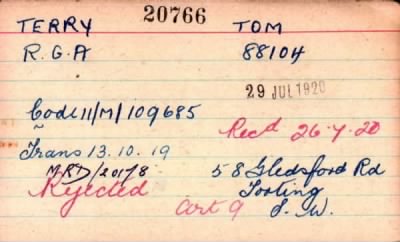 20766
TERRY TOM
R.G.A 88104
29 JUL 1920
Code 11/M/109685
Recd 26.7.20
Trans 13.10.19
MRD/20178 58 Gledsford Rd
Rejected Tooting
Art 9 S.W.